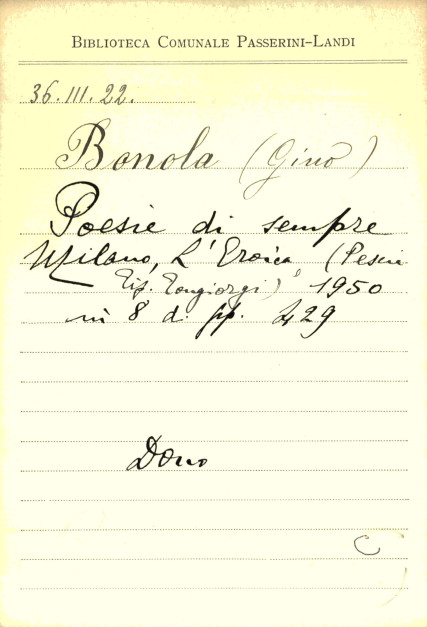 BIBLIOTECA COMUNALE PASSERINI-LANDI
36.III.22.
Bonola (Gino)
Poesie di sempre
Milano, L'Eroica (Pescia
Tip. Tongiorgi) 1950
in 8 di pp. 429
Dono
C